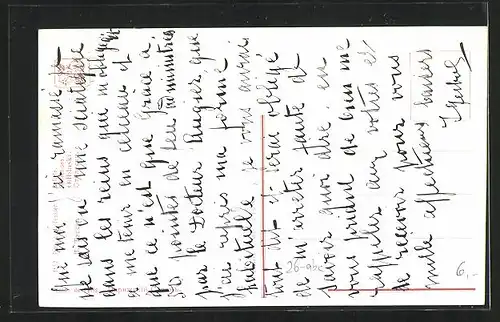 Qui moi j'ai ramassé je
ne sais où une sciatique
dans les reins qui m'oblige
à me tenir en ceinture et
que ce n'est que grâce à
50 pointes de feu administrées
par le Docteur Rugier, que
j'ai repris ma forme
habituelle. Je vous aurai
tout dit et serai obligé
de m'arrêter faute de
savoir quoi dire, en
vous priant de bien me
rappeler aux vôtres et
de recevoir pour vous
mille affectueux baisers
26-abc
6,-